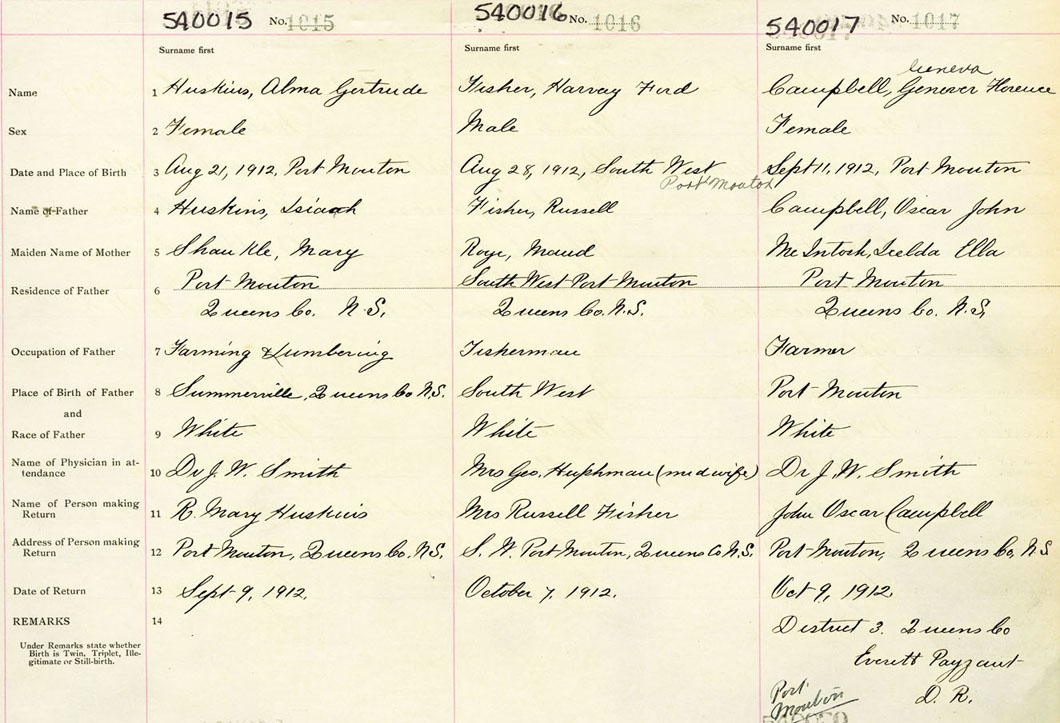 540015 No. 1015 540016 No. 1016 540017 No. 1017
Surname first Surname first Surname first
Geneva
Name 1 Huskins, Alma Gertrude Fisher, Harvay Ford Campbell, Genever Florence
Sex 2 Female Male Female
Date and Place of Birth 3 Aug 21, 1912, Port Mouton Aug 28, 1912, South West Sept 11, 1912, Port Mouton
Port Mouton
Name of Father 4 Huskins, Isiaah Fisher, Russell Campbell, Oscar John
Maiden Name of Mother 5 Mary Roye, Maud McIntosh, Ella
Port Mouton South West Port Mouton Port Mouton
Residence of Father 6
Queens Co. N.S. Queens Co. N.S. Queens Co. N.S.
Occupation of Father 7 Farming & Lumbering Fisherman Farmer
Place of Birth of Father 8 Summerville, Queens Co N.S. South West Port Mouton
and
Race of Father 9 White White White
Name of Physician in at-
tendance 10 Dr J. W. Smith Mrs Geo. Huphman (midwife) Dr J. W. Smith
Name of Person making
Return 11 R. Mary Huskins Mrs Russell Fisher John Oscar Campbell
Address of Person making
Return 12 Port Mouton, Queens Co. N.S. S. W. Port Mouton, Queens Co N.S. Port Mouton, Queens Co, N S
Date of Return 13 Sept 9, 1912. October 7, 1912. Oct 9, 1912.
REMARKS 14
District 3. Queens Co
Under Remarks state whether
Birth is Twin, Triplet, Ille-
gitimate or Still-birth.
Everett Payzant
D. R.
Port
Mouton